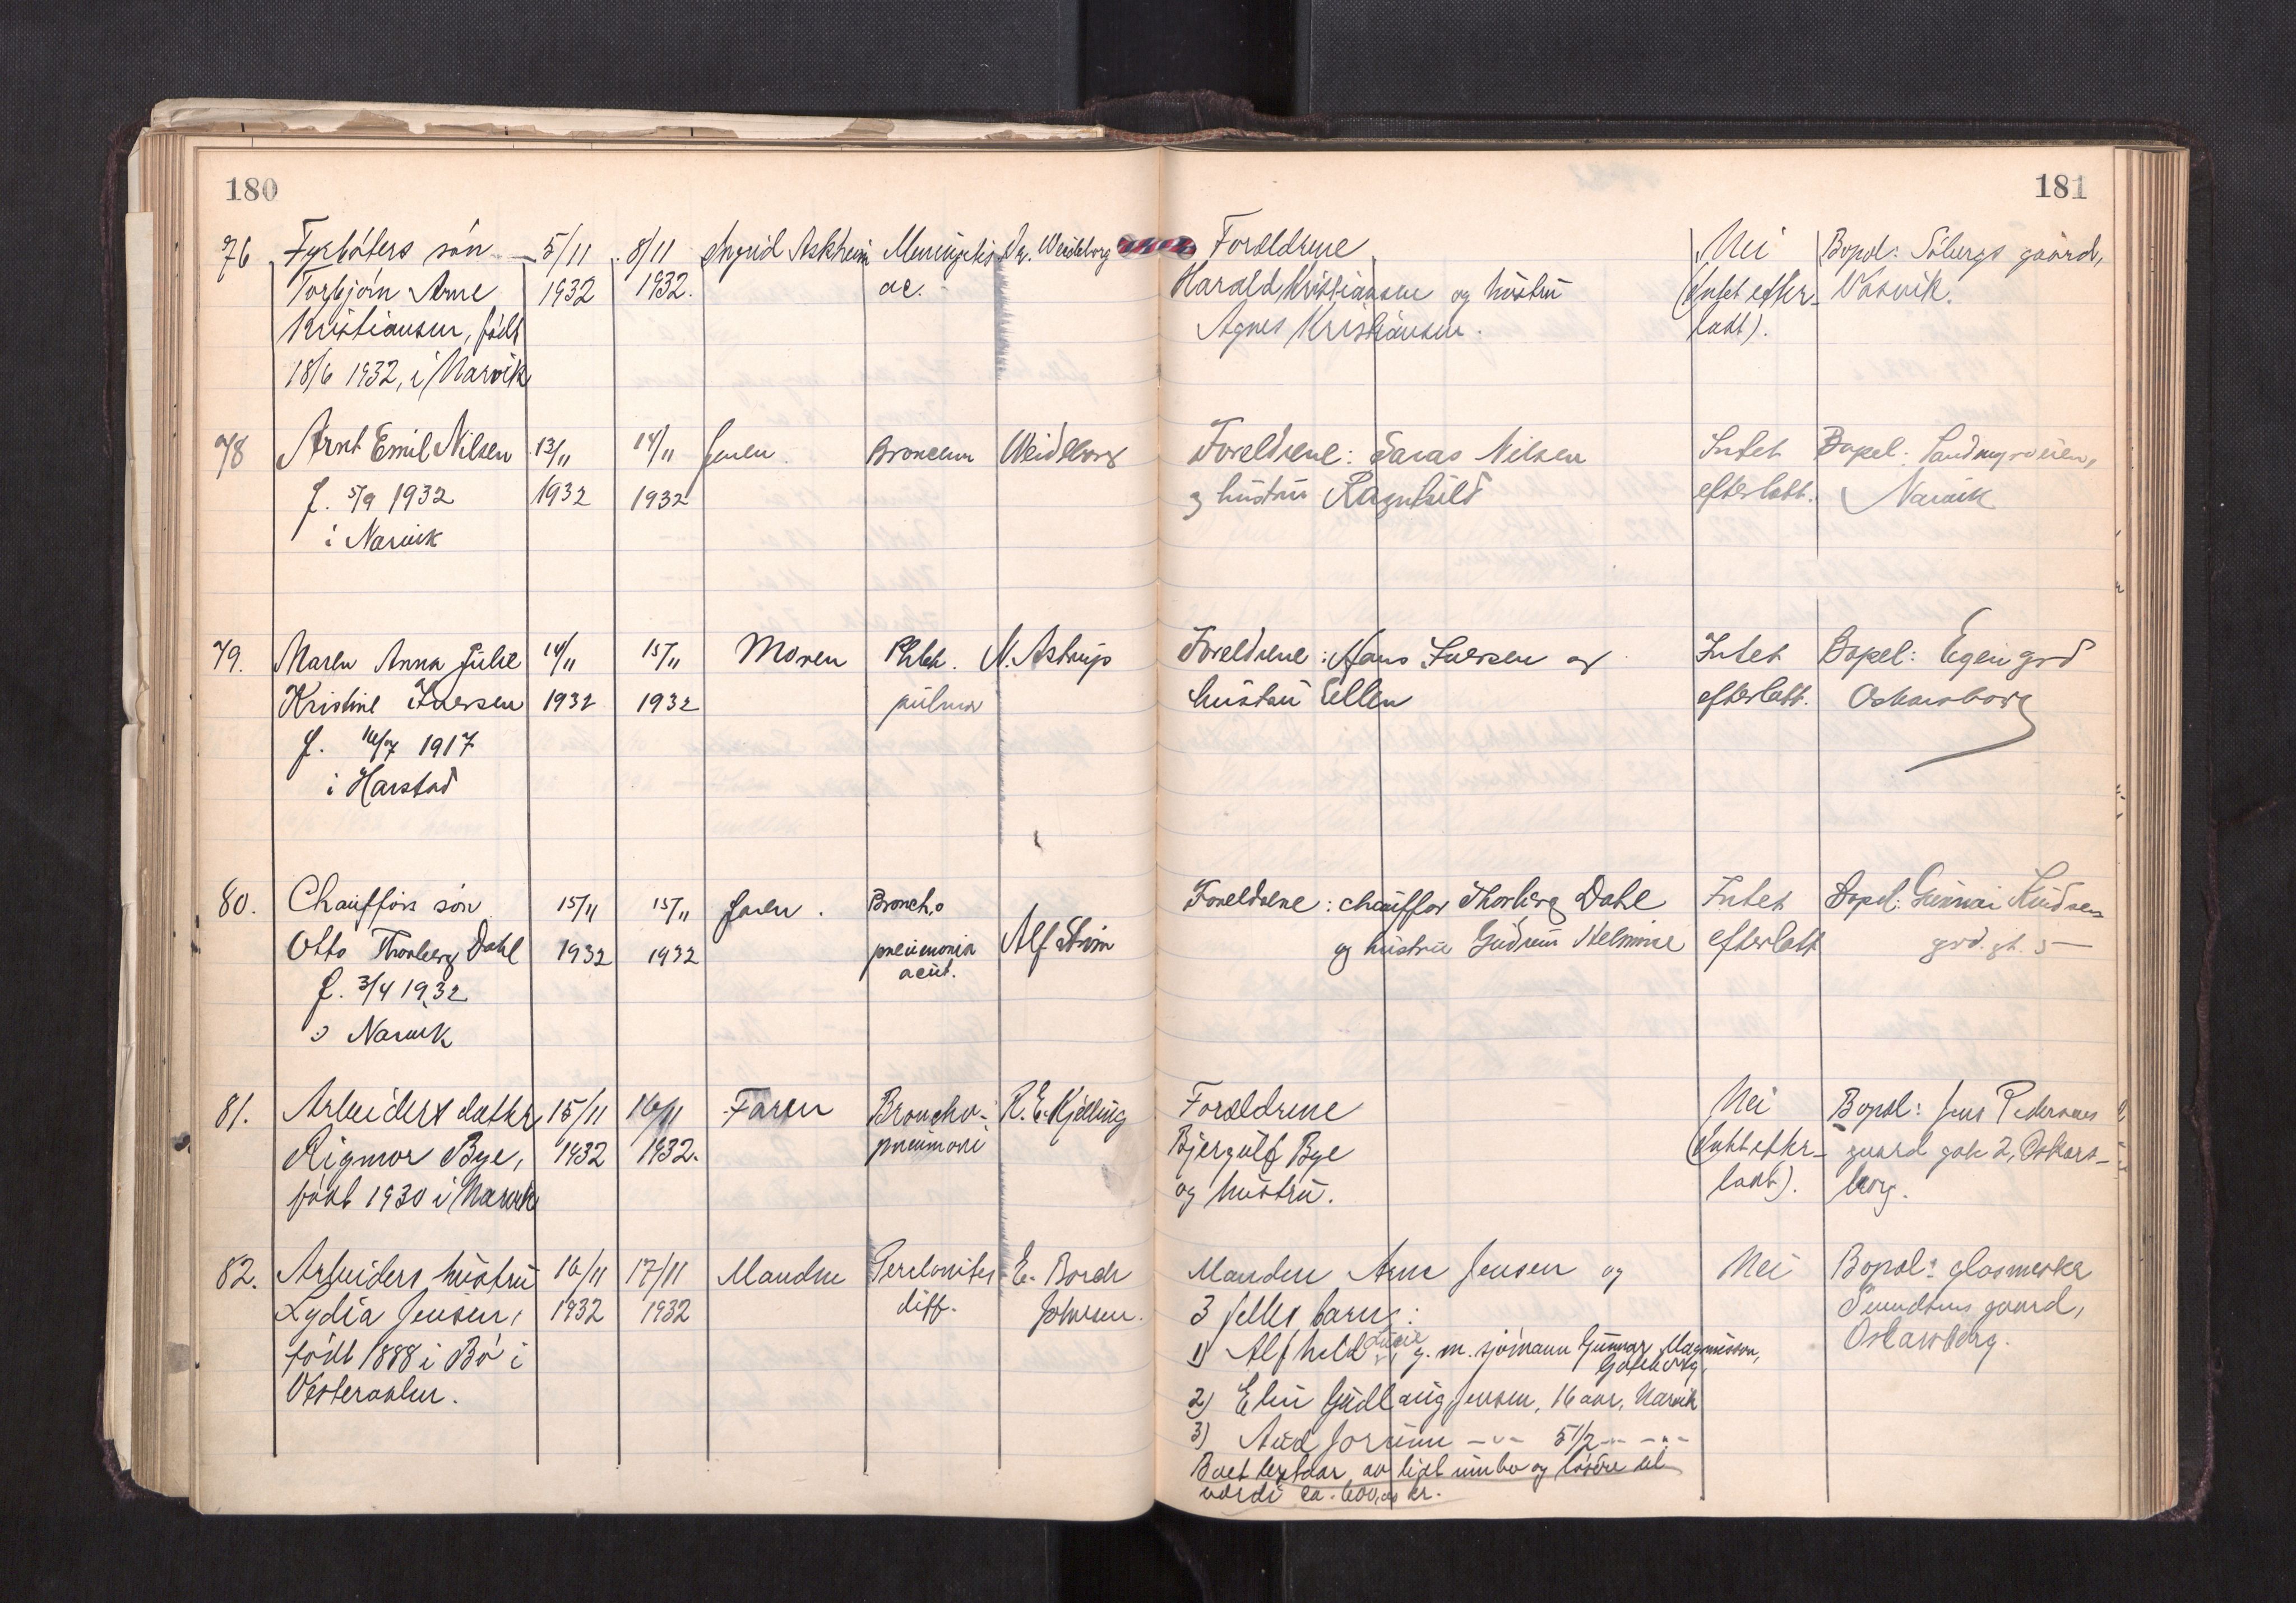 180
181
76 Fyrbøters søn 5/11 8/11 Ingrid Askheim Meningitis Dr. Weideborg Foreldrene Nei Bopæl: Søbergs gaard,
Torbjørn Arne 1932 1932. ac. Harald Kristiansen og hustru (Intet efter- Vasvik.
Kristiansen, født Agnes Kristiansen. ladt).
18/6 1932, i Narvik
78 Arnt Emil Nilsen 13/11 14/11 Faren. Weideborg Foreldrene: Nilsen Intet Bopel:
f. 5/9 1932 1932 1932 og hustru Ragnhild efterlatt. Narvik
i Narvik
79. Maren Anna Julie 14/11 15/11 Moren Phteh. N. Astrup Foreldrene: Hans Iversen og Intet Bopel: Egen grd
Kristine Iversen 1932 1932 pulmon hustru Ellen efterlatt. Oskarsborg
f. 16/7 1917
i Harstad
80. Chaufførs søn 15/11 15/11 Faren. Broncho Foreldrene: chauffør Thorberg Dahl Intet Bopel: Gunnar Knudsen
Otto Thorberg Dahl 1932 1932 pneumonia Alf Strøm og hustru Gudrun Helmine efterlatt grd. gt. 5
acut.
f. 3/4 1932
i Narvik
81. Arbeiders datter 15/11 16/11 Faren Broncho- R. E. Kjelling Foreldrene Nei Bopæl: Jens Pedersens
Rigmor Bye, 1932 1932. pneumoni Bjergulf Bye (Intet efter- gaard gate 2, Oskars-
født 1930 i Narvik og hustru. ladt). borg.
82. Arbeiders hustru 16/11 17/11 Manden Peritonites E. Borch Manden Arne Jensen og Nei Bopæl: glasmester
Lydia Jensen, 1932 1932 diff. Johnsen. 3 felles barn: gaard,
født 1888 i Bø i 1) Alfhild g. m. sjømann Gunnar Magnusson, Oskarsborg.
Gøteborg,
Vesteraalen. 2) Elin Gudlaug Jensen, 16 aar, Narvik
3) Aud Jorunn -"- 5 1/2 -"- -"-
Boet bestaar av litt innbo og løsøre til
verdi ca. 600,00 kr.